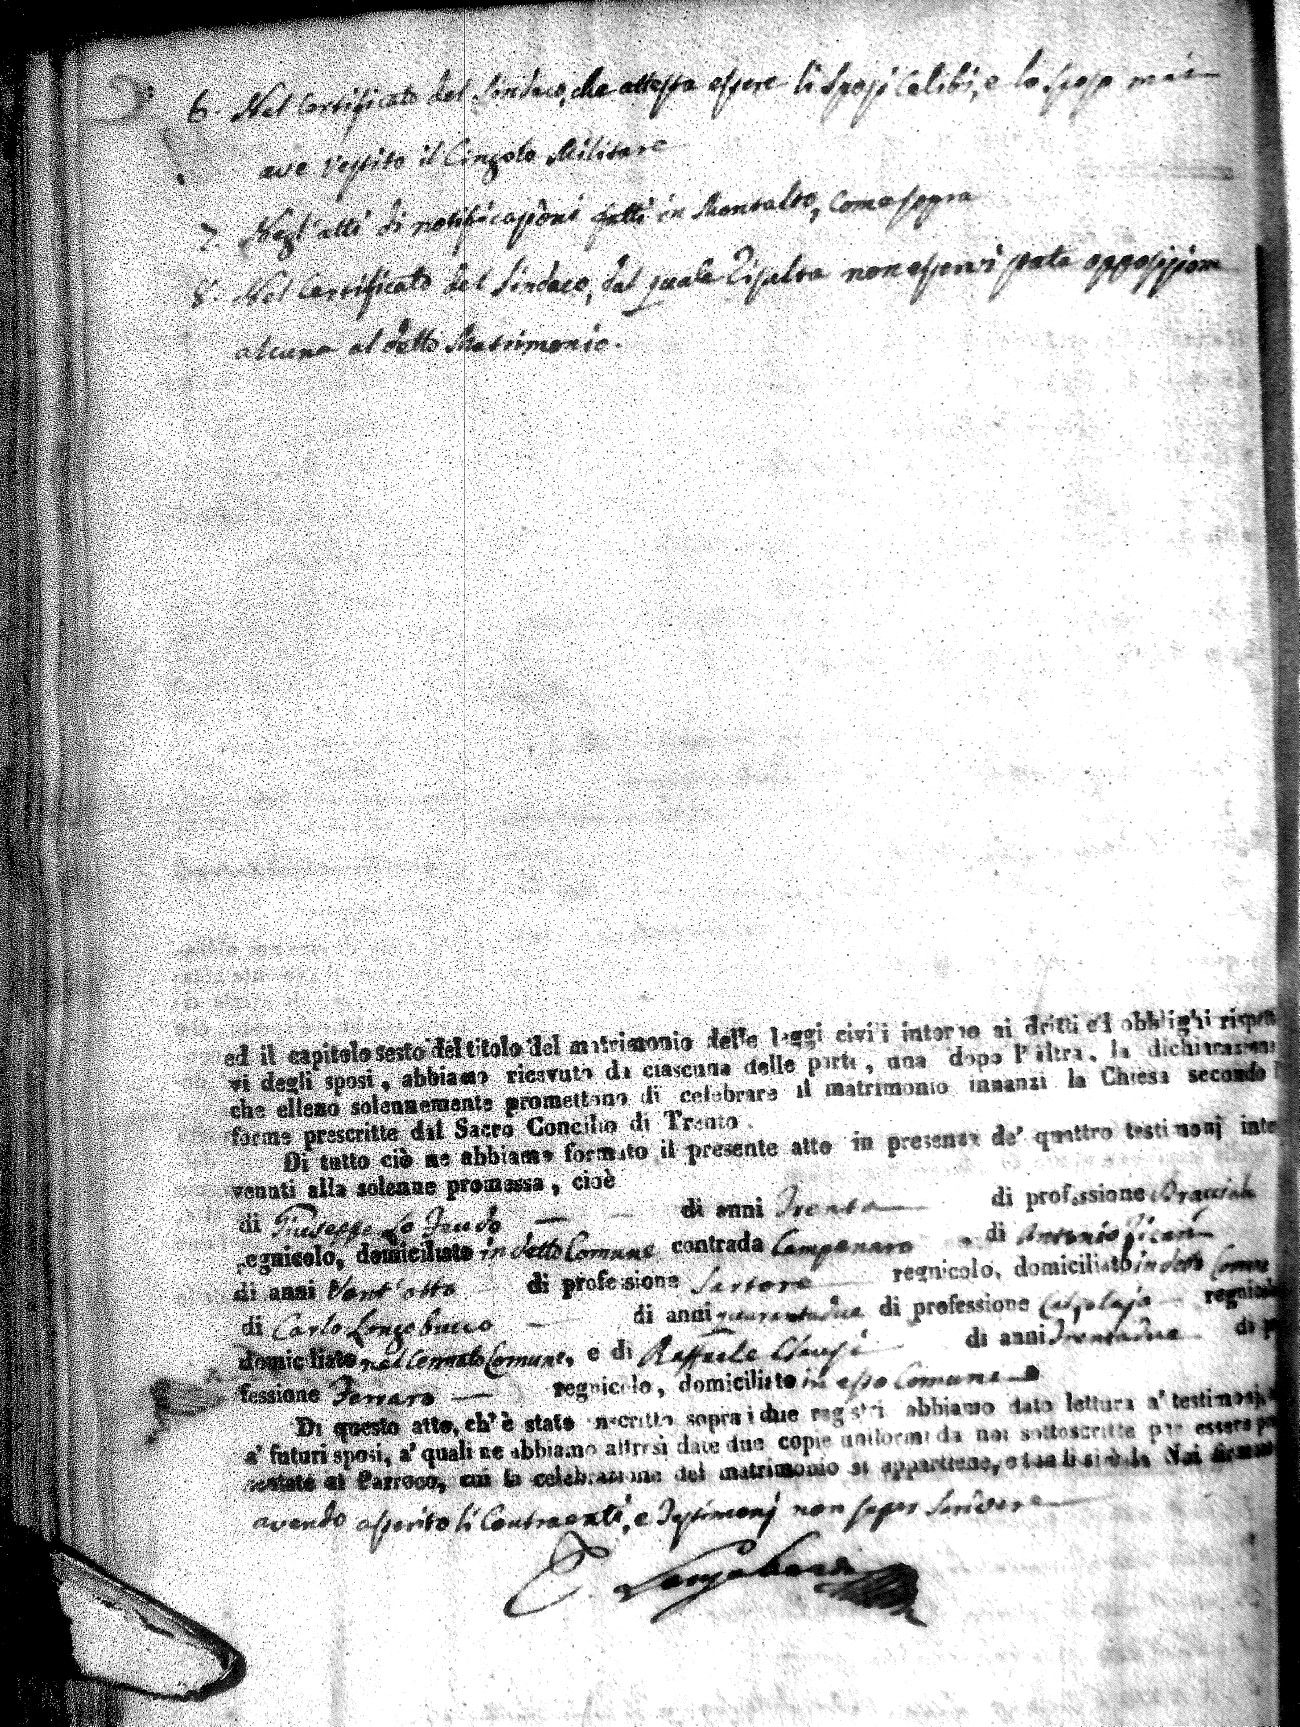 6. Nel Certificato del Sindaco, che attesta essere li Sposi Celibi, e lo sposo mai
ave vestito il Cingolo Militare
7. Negl'atti di notificazioni fatti in Montalto, come sopra
8. Nel Certificato del Sindaco, dal quale risulta non esservi stata opposizione
alcuna al detto Matrimonio.
ed il capitolo sesto del titolo del matrimonio delle leggi civili intorno ai dritti ed obblighi rispetti
vi degli sposi, abbiamo ricevuto da ciascuna delle parti, una dopo l'altra, la dichiarazione
che elleno solennemente promettono di celebrare il matrimonio innanzi la Chiesa secondo l
forme prescritte dal Sacro Concilio di Trento.
Di tutto ciò ne abbiamo formato il presente atto in presenza de' quattro testimonj inte
venuti alla solenne promessa, cioè
di Giuseppe Lo Feudo di anni Trenta di professione Bracciale
regnicolo, domiciliato in detto Comune contrada Campanaro, di Antonio
di anni Vent'otto di professione Sartore regnicolo, domiciliato in detto Comune
di Carlo Longobucco di anni quarantadue di professione Calzolajo regnicolo
domiciliato nel cennato Comune, e di Raffaele Chiussi di anni Trentadue di p
fessione Ferraro regnicolo, domiciliato in esso Comune
Di questo atto, ch'è stato inscritto sopra i due registri abbiamo dato lettura a' testimonj,
a' futuri sposi, a' quali ne abbiamo altresì date due copie uniformi da noi sottoscritte per essere pre
sentate al Parroco, cui la celebrazione del matrimonio si appartiene, Noi
avendo asserito li Contraenti, e Testimonj non saper scrivere